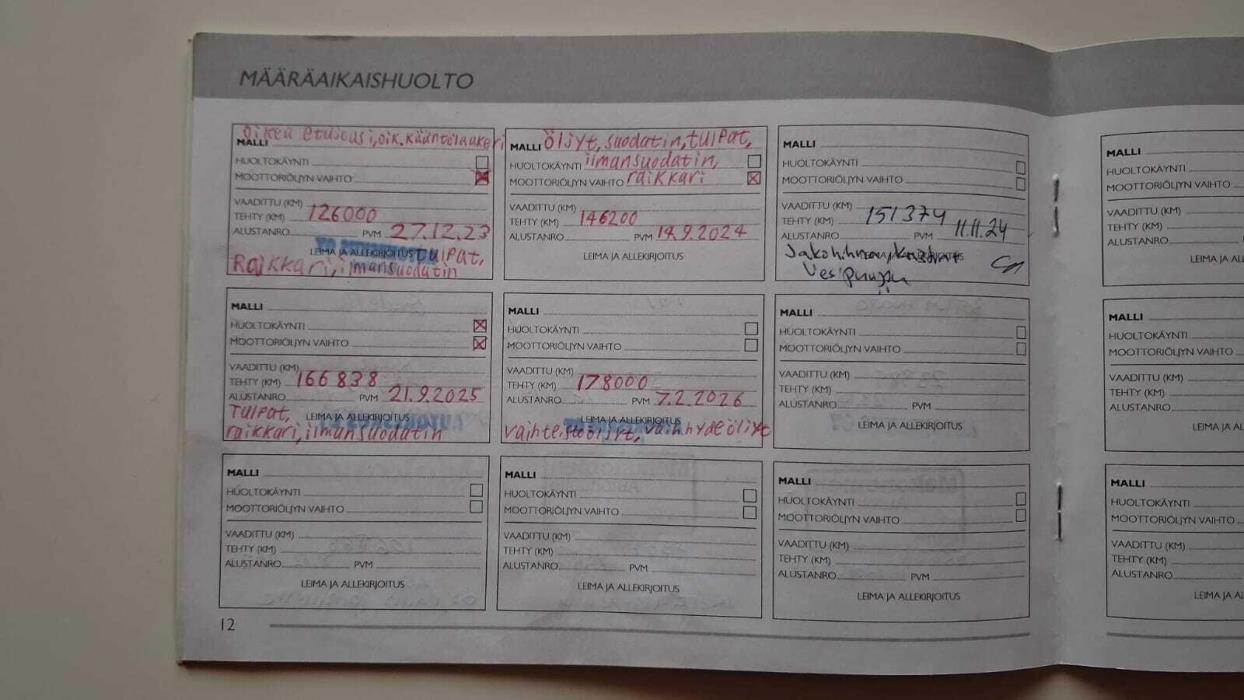 MÄÄRÄAIKAISHUOLTO
Oikea etujousi, oik. kääntölaakeri
MALLI
HUOLTOKÄYNTI
MOOTTORIÖLJYN VAIHTO
VAADITTU (KM)
TEHTY (KM) 126000
ALUSTANRO PVM 27.12.23
LEIMA JA ALLEKIRJOITUS tulpat,
Raikkari, ilmansuodatin
MALLI Öljyt, suodatin, tulpat,
HUOLTOKÄYNTI ilmansuodatin,
MOOTTORIÖLJYN VAIHTO raikkari
VAADITTU (KM)
TEHTY (KM) 146200
ALUSTANRO PVM 14.9.2024
LEIMA JA ALLEKIRJOITUS
MALLI
HUOLTOKÄYNTI
MOOTTORIÖLJYN VAIHTO
VAADITTU (KM)
TEHTY (KM) 151374
ALUSTANRO PVM 11.11.24
MALLI
HUOLTOKÄYNTI
MOOTTORIÖLJYN VAIHTO
VAADITTU (KM)
TEHTY (KM)
ALUSTANRO
LEIMA JA AL
MALLI
HUOLTOKÄYNTI
MOOTTORIÖLJYN VAIHTO
VAADITTU (KM)
TEHTY (KM) 166838
ALUSTANRO PVM 21.9.2025
Tulpat, LEIMA JA ALLEKIRJOITUS
raikkari, ilmansuodatin
MALLI
HUOLTOKÄYNTI
MOOTTORIÖLJYN VAIHTO
VAADITTU (KM)
TEHTY (KM) 178000
ALUSTANRO PVM 7.2.2026
LEIMA JA ALLEKIRJOITUS
vaihteistoöljyt,
MALLI
HUOLTOKÄYNTI
MOOTTORIÖLJYN VAIHTO
VAADITTU (KM)
TEHTY (KM)
ALUSTANRO PVM
LEIMA JA ALLEKIRJOITUS
MALLI
HUOLTOKÄYNTI
MOOTTORIÖLJYN VAIHTO
VAADITTU (KM)
TEHTY (KM)
ALUSTANRO
LEIMA JA AL
MALLI
HUOLTOKÄYNTI
MOOTTORIÖLJYN VAIHTO
VAADITTU (KM)
TEHTY (KM)
ALUSTANRO PVM
LEIMA JA ALLEKIRJOITUS
MALLI
HUOLTOKÄYNTI
MOOTTORIÖLJYN VAIHTO
VAADITTU (KM)
TEHTY (KM)
ALUSTANRO PVM
LEIMA JA ALLEKIRJOITUS
MALLI
HUOLTOKÄYNTI
MOOTTORIÖLJYN VAIHTO
VAADITTU (KM)
TEHTY (KM)
ALUSTANRO PVM
LEIMA JA ALLEKIRJOITUS
MALLI
HUOLTOKÄYNTI
MOOTTORIÖLJYN VAIHTO
VAADITTU (KM)
TEHTY (KM)
ALUSTANRO
LEIMA JA AL
12